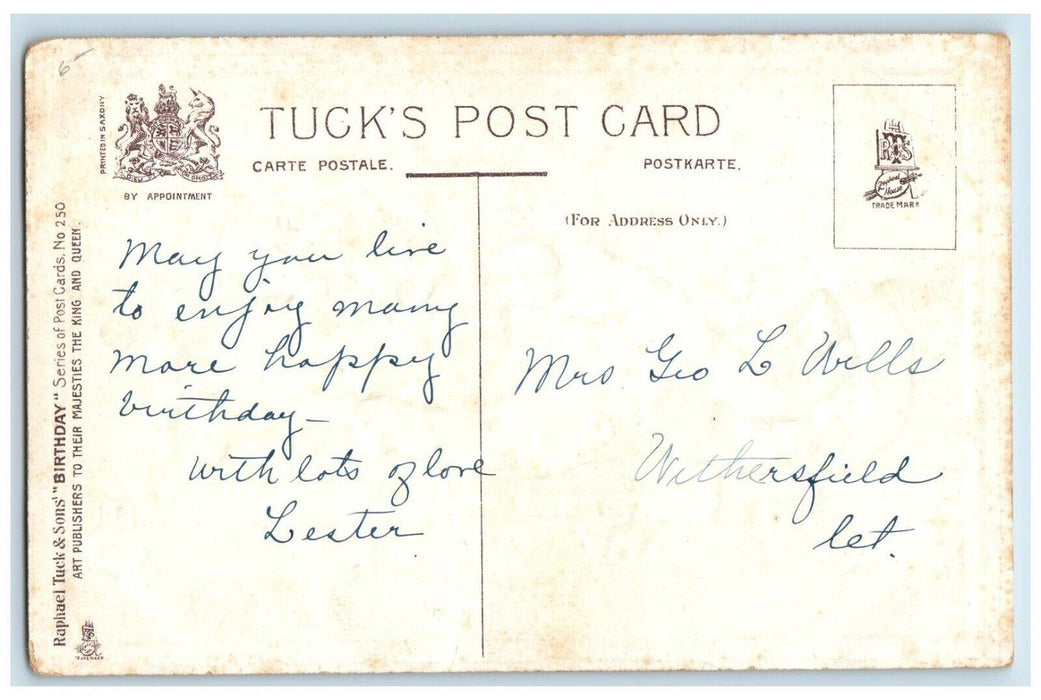 6-
PRINTED IN SAXONY
BY APPOINTMENT
TUCK'S POST CARD
CARTE POSTALE.
POSTKARTE.
(FOR ADDRESS ONLY.)
RTS
Raphael
House
TRADE MARK
Raphael Tuck & Sons' "BIRTHDAY" Series of Post Cards. No 250
ART PUBLISHERS TO THEIR MAJESTIES THE KING AND QUEEN.
May you live
to enjoy many
more happy
birthday—
with lots of love
Lester
Mrs. Geo L Wells
Wethersfield
Ct.